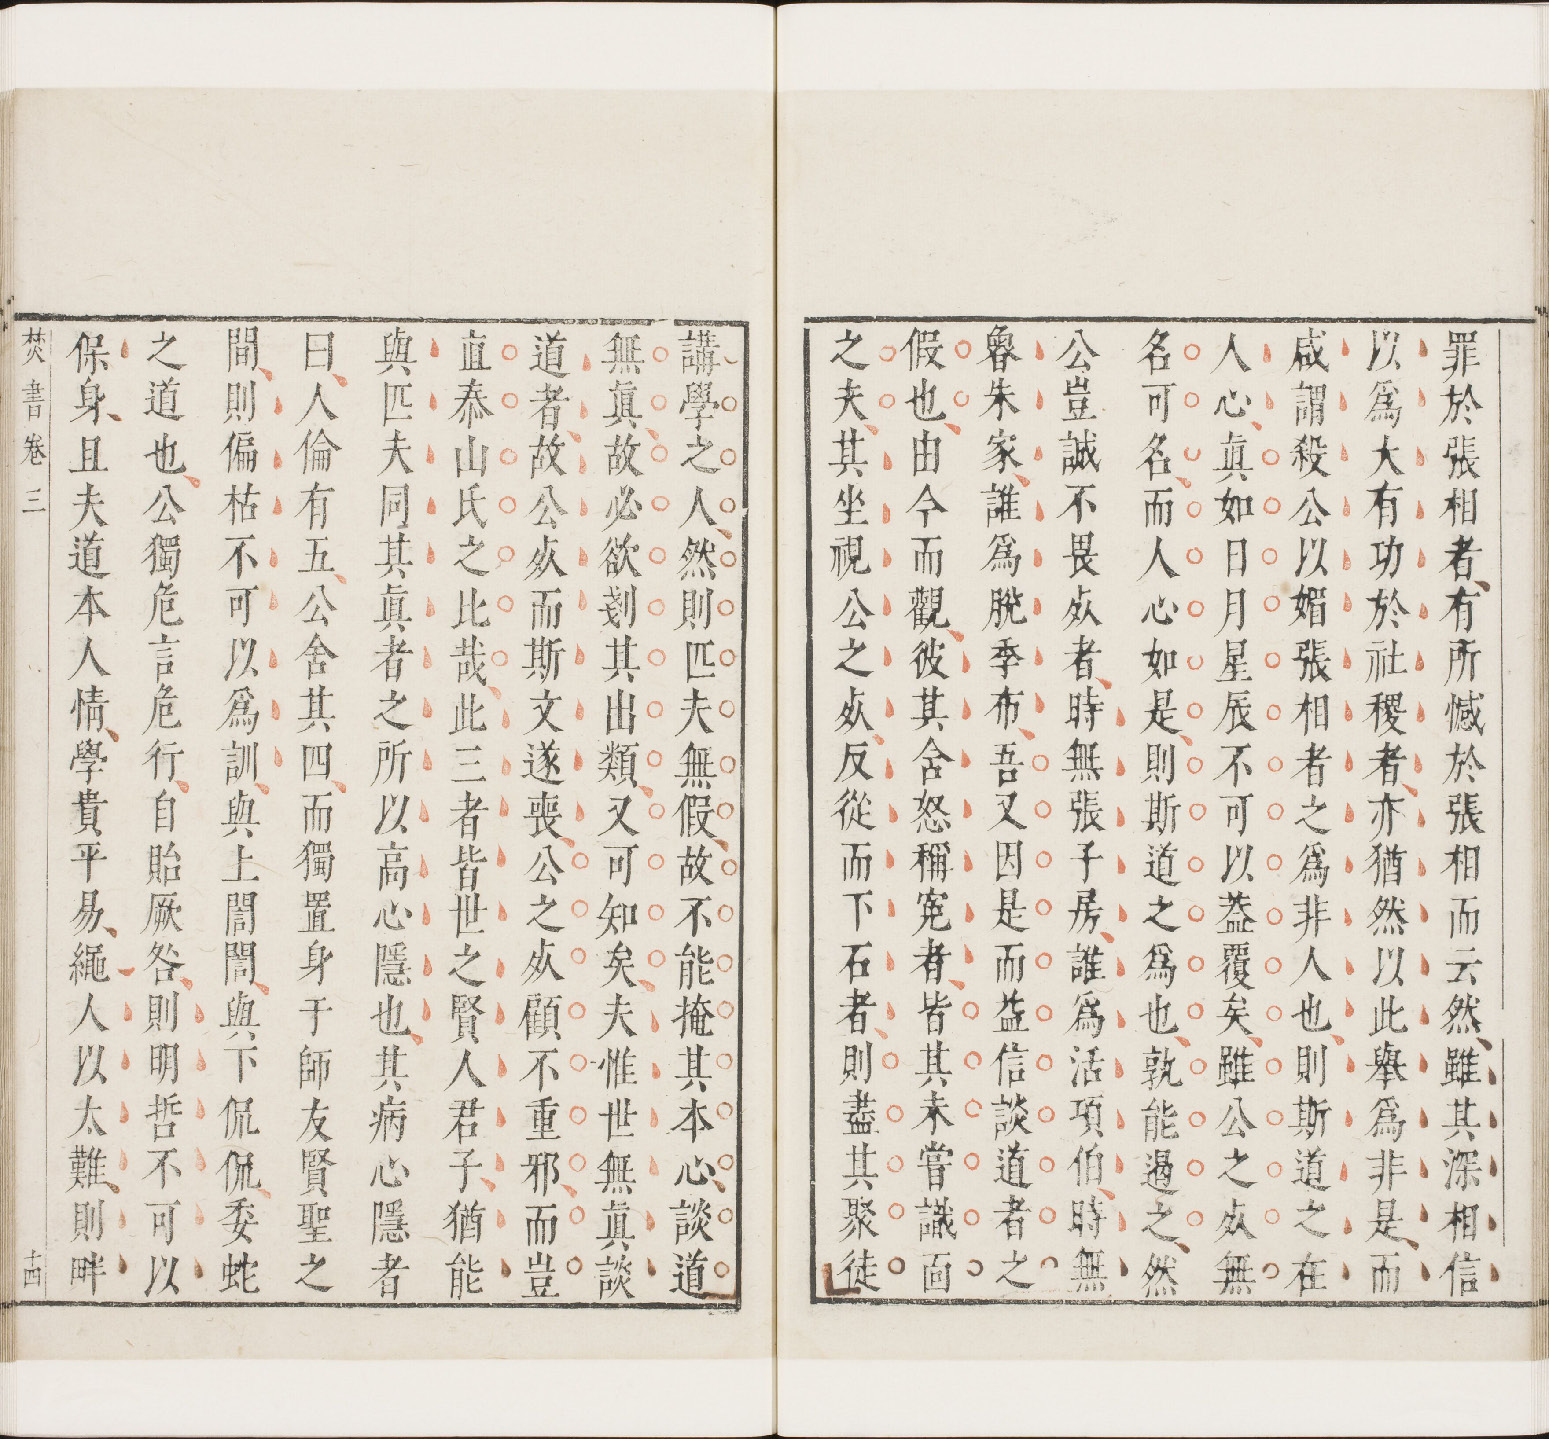 罪於張相者有所憾於張相而云然雖其深相信
以爲大有功於社稷者亦猶然以此舉爲非是而
咸謂殺公以媚張相者之爲非人也則斯道之在
人心眞如日月星辰不可以葢覆矣雖公之㱔無
名可名而人心如是則斯道之爲也孰能遏之然
公豈誠不畏㱔者時無張子房誰爲活項伯時無
魯朱家誰爲脫季布吾又因是而益信談道者之
假也由今而觀彼其含怒稱寃者皆其未嘗識面
之夫其坐視公之㱔反從而下石者則盡其聚徒
講學之人然則匹夫無假故不能掩其本心談道
無眞故必欲剗其出類又可知矣夫惟世無眞談
道者故公㱔而斯文遂喪公之㱔顧不重邪而豈
直泰山氏之比哉此三者皆世之賢人君子猶能
與匹夫同其眞者之所以高心隱也其病心隱者
曰人倫有五公舍其四而獨置身于師友賢聖之
間則偏枯不可以爲訓與上誾誾與下侃侃委蛇
之道也公獨危言危行自貽厥咎則明哲不可以
保身且夫道本人情學貴平易繩人以太難則畔
焚書卷三
十四